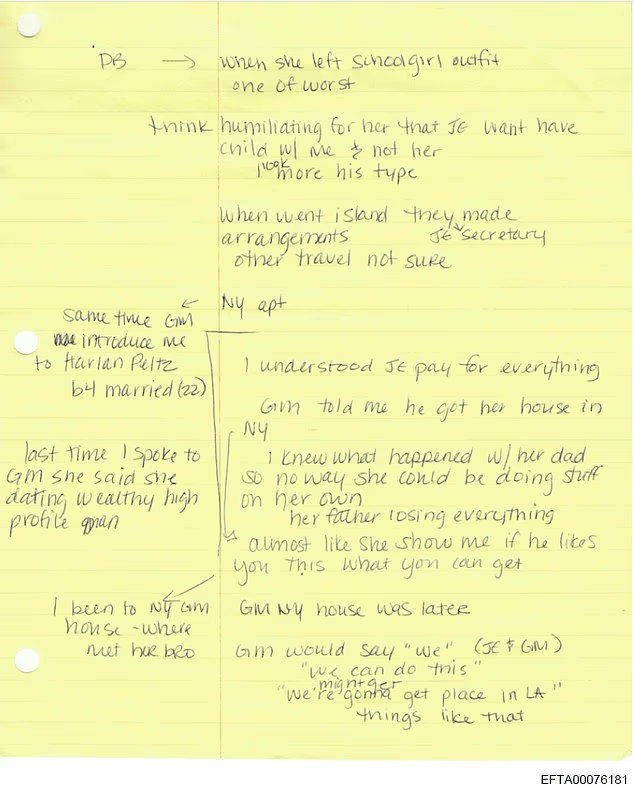 DB → when she left schoolgirl outfit
one of worst
think humiliating for her that JE want have
child w/ me & not her
I look more his type
when went island they made
arrangements JE → secretary
other travel not sure
NY apt
same time GM
introduce me
to Harlan Peltz
b4 married (22)
I understood JE pay for everything
GM told me he got her house in
NY
last time I spoke to
GM she said she
dating wealthy high
profile man
I knew what happened w/ her dad
so no way she could be doing stuff
on her own
her father losing everything
almost like she show me if he likes
you this what you can get
I been to NY GM
house - where
met her bro
GM NY house was later
GM would say "we" (JE & GM)
"we can do this"
might get
"we're gonna get place in LA"
things like that
EFTA00076181